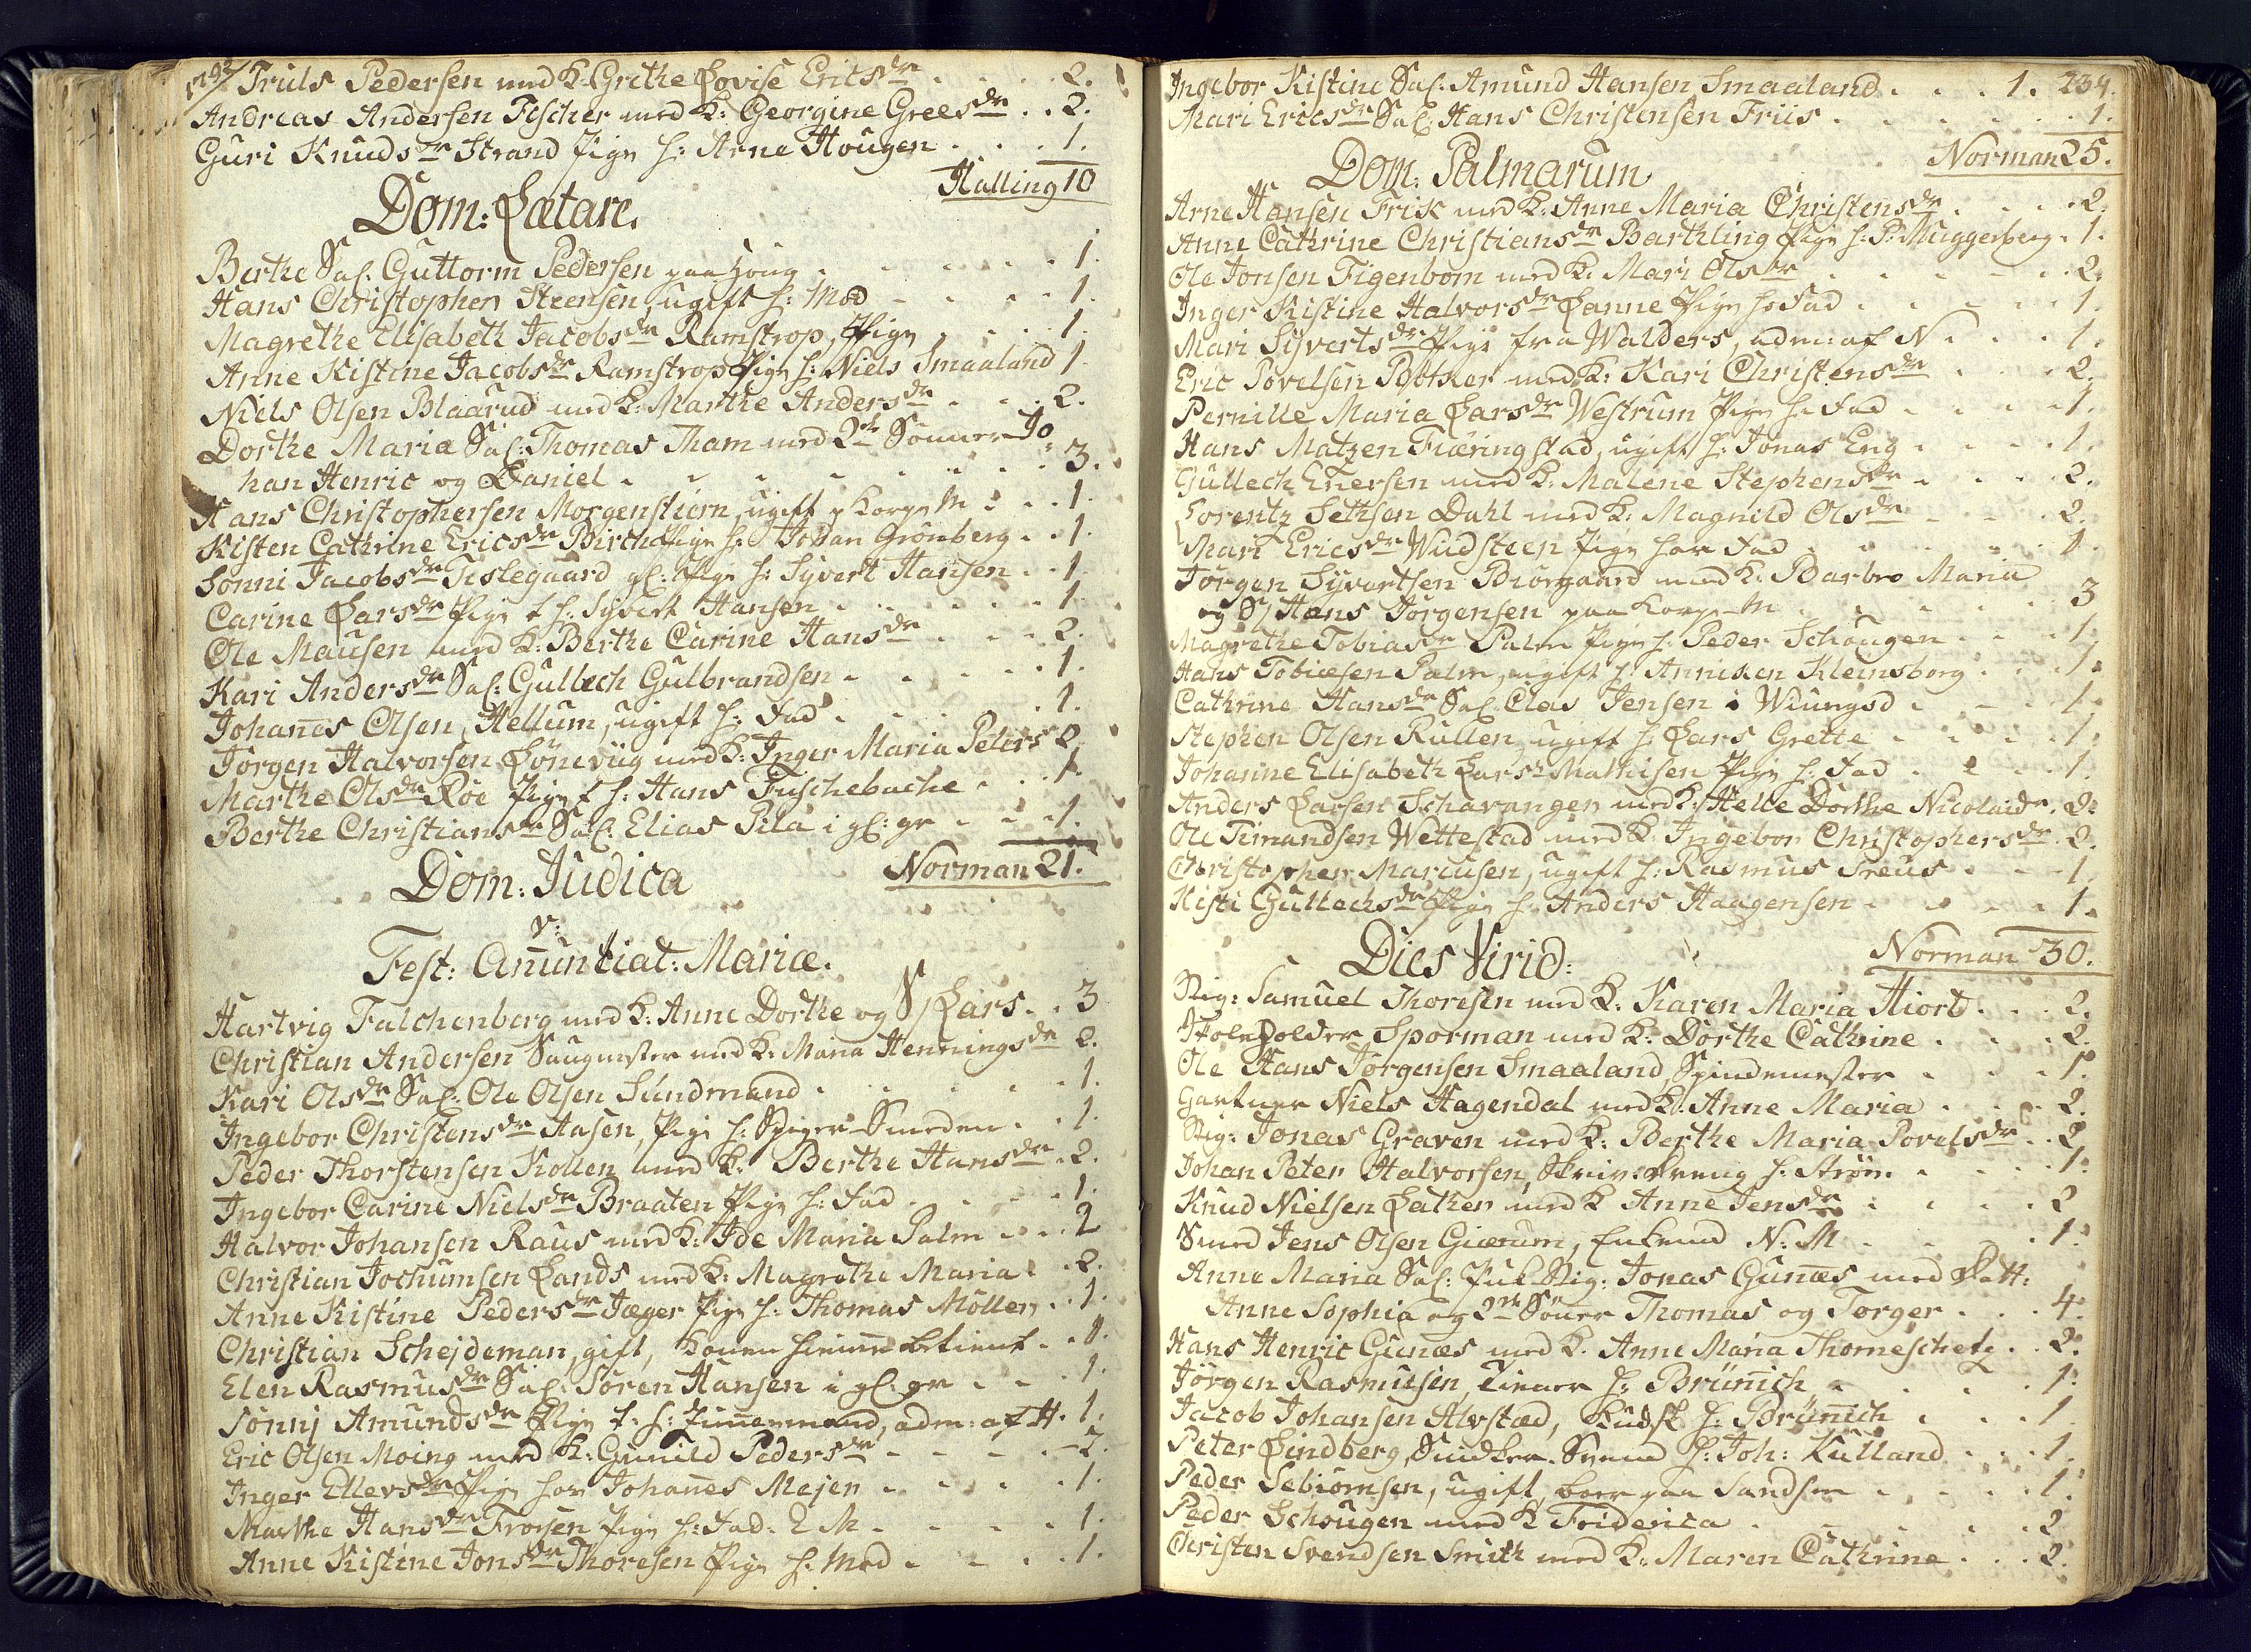 1792/ Truls Pedersen med K. Grethe Lovise Ericsdr . . . 2.
Andreas Andersen Fischer med K: Georgine Greesdr . . 2.
Guri Knudsdr Strand Pige h: Arne Hougen . . . 1.
Halling 10
Dom: Lætare.
Berthe Sal. Guttorm Pedersen paa Houg . . . . 1.
Hans Christopher Steensen, ugift h: Mod . . . 1.
Magrethe Elisabeth Jacobsdr Ramstrop, Pige . . . 1.
Anne Kistine Jacobsdr Ramstrop Pige h: Niels Smaaland 1.
Niels Olsen Blaarud med K: Marthe Andersdr . . . 2.
Dorthe Maria Sal: Thomas Tham med 2de Sønner Jo
han Henric og Daniel . . . . . . 3.
Hans Christophersen Morgenstiern, ugift p Korps M . . 1.
Kisten Cathrine Ericsdr Birch Pige h: Johan Grønberg . . 1.
Sonni Jacobsdr Tislegaard gl: Pige h: Syvert Hansen . . 1.
Carine Larsdr Pige t h: Syvert Hansen . . . . 1.
Ole Mausen med K: Berthe Carine Hansdr . . . 2.
Kari Andersdr Sal: Gulbech Gulbrandsen . . . . 1.
Johanes Olsen, Hellum, ugift h: Fad . . . . 1.
Jørgen Halvorsen Løneviig med K: Inger Maria Peters 2.
Marthe Olsdr Roe Pige t h: Hans Fuschebache . . . 1.
Berthe Christiansdr Sal: Elias Pila i gl: gr . . . 1.
Norman 21.
Dom: Judica
v:
Fest: Anuntiat: Mariæ.
Hartvig Falchenberg med K: Anne Dorthe og S/ Lars . . 3
Christian Andersen Saugmester med K: Maria Henningsdr 2.
Kari Olsdr Sal: Ole Olsen Sundmand . . . . 1.
Ingebor Christensdr Aasen, Pige h: Spiger-Smeden . . 1.
Peder Thorstensen Kollen med K: Berthe Hansdr . 2.
Ingebor Carine Nielsdr Braaten Pige h: Fad . . . 1.
Halvor Johansen Raus med K: Ide Maria Palm . . . 2
Christian Jochumsen Lands med K: Magrethe Maria . . 2.
Anne Kistine Pedersdr Jæger Pige h: Thomas Møller . . 1.
Christian Schejdeman, gift, Konen hieme betient . . 1.
Elen Rasmusdr Sal: Søren Hansen i gl: gr . . . 1.
Sønnj Amundsdr Pige t: h: Timermand, adm: af H. 1.
Eric Olsen Moing med K: Gunild Pedersdr . . . 2.
Inger Ellevsdr Pige hos Johanes Mejen . . . . 1.
Marthe Hansdr Frøysen Pige h: Fad. E M . . . . 1.
Anne Kistine Jonsdr Thoresen Pige h: Mod . . . . 1.
Ingebor Kistine Sal: Amund Hansen Smaaland . . . 1. 234.
Mari Ericsdr Sal: Hans Christensen Friis . . . . . 1.
Norman 25.
Dom: Palmarum
Arne Hansen Frisk med K: Anne Maria Christensdr . . . 2.
Anne Cathrine Christiansdr Barthling Pige h: P: Muggerberg . 1.
Ole Jonsen Figenbom med K: Mari Olsdr . . . . . 2.
Inger Kistine Halvorsdr Lanne Pige h: Fad . . . . 1.
Mari Syvertsdr Pige fra Walders, adm: af N . . . 1.
Eric Povelsen Bøtker med K: Kari Christensdr . . . 2.
Pernille Maria Larsdr Westrum Pige h: Fad . . . . 1.
Hans Matzen Fiæringstad, ugift h: Jonas Eng . . . 1.
Gullech Enersen med K: Malene Stephensdr . . . 2.
Lorentz Sethsen Dahl med K: Magnild Olsdr . . . 2.
Mari Ericsdr Wudsteen Pige hos Fad . . . . . 1.
Jørgen Syvertsen Biørgaard med K: Barbro Maria
og S/ Hans Jørgensen paa Korps-M . . . . . 3
Magrethe Tobiasdr Palm Pige h: Peder Schougen . . . 1.
Hans Tobiæsen Palm, ugift h: Anniken Kleinsborg . . . 1.
Cathrine Hansdr Sal: Clas Jensen i Wiungsd . . . 1.
Stephen Olsen Rullen, ugift h: Lars Grette . . . . 1.
Johanne Elisabeth Larsdr Mathisen Pige h: Fad . . . 1.
Anders Larsen Schavangen med K: Helle Dorthe Nicolaidr . 2.
Ole Simandsen Wettestad med K: Ingebor Christophersdr . 2.
Christopher Mariusen, ugift h: Rasmus Preus . . . 1.
Kisti Gullachsdr Pige h: Anders Haagensen . . . . 1.
Norman 30.
Dies Virid:
Sig: Samuel Thoresen med K: Karen Maria Hiort . . . 2.
Sporman med K: Dorthe Cathrine . . . . 2.
Ole Hans Jørgensen Smaaland, Spindemester . . . . 1.
Gartner Niels Hagendal med K: Anne Maria . . . . 2.
Sig: Jonas Graven med K: Berthe Maria Povelsdr . . 2
Johan Peter Halvorsen, Skriv: Dreng h: Strøm . . . . 1.
Knud Nielsen Lather med K Anne Jensdr . . . . 2
Smed Jens Olsen Giærum, Enkemd N: M . . . . 1.
Anne Maria Sal: Sig: Jonas Gunæs med Datt:
Anne Sophia og 2de Sønner Thomas og Torger . . . 4.
Hans Henric Gunæs med K. Anne Maria Thorneschetz . . 2.
Jørgen Rasmussen, Tiener h: Brünich . . . . 1.
Jacob Johansen Alvstad, Kudsk h: Brünich . . . 1
Peter Lindberg, Snidker-Svend h: Joh: Kulland . . . 1.
Peder Sebiørnsen, ugift, boer paa Sandsm . . . . 1.
Peder Schougen med K Friderica . . . . . 2
Christen Svendsen Smith med K: Maren Cathrine . . . 2.